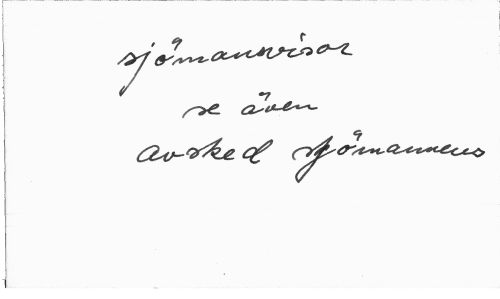 sjömansvisor
se även
avsked sjömannens